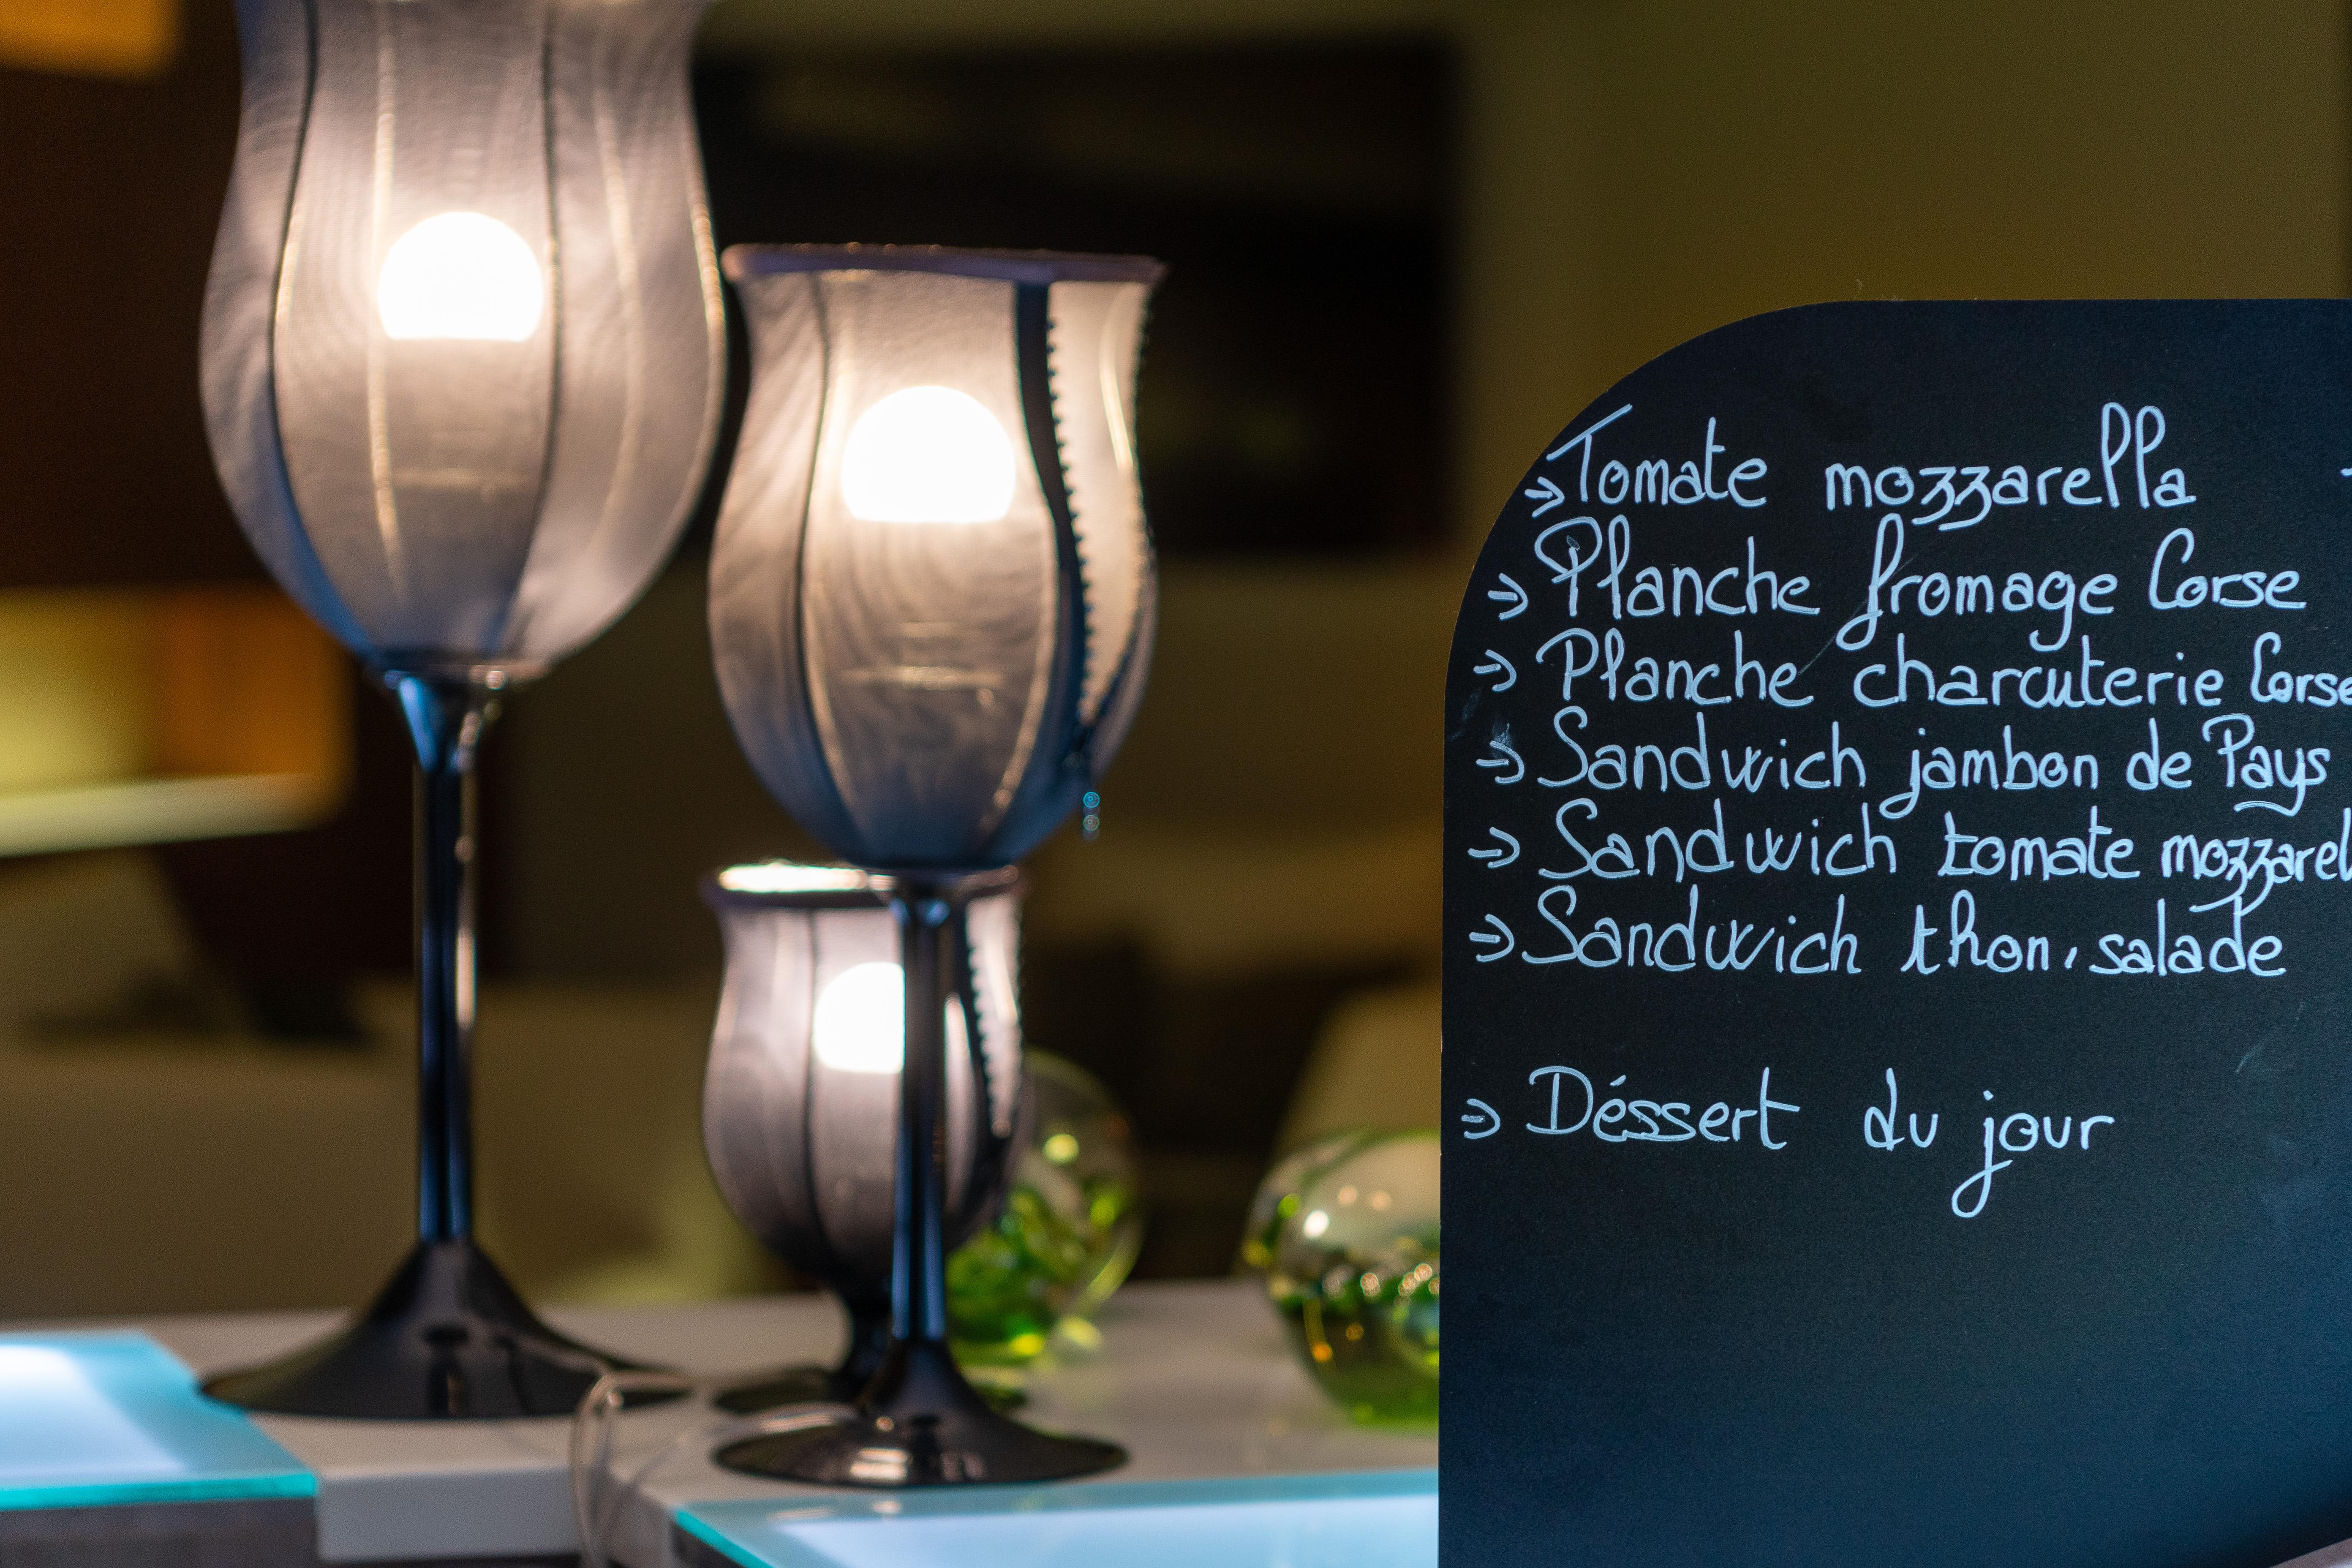 → Tomate mozzarella
→ Planche fromage Corse
→ Planche charcuterie Corse
→ Sandwich jambon de Pays
→ Sandwich tomate mozzarel
→ Sandwich thon, salade
→ Déssert du jour